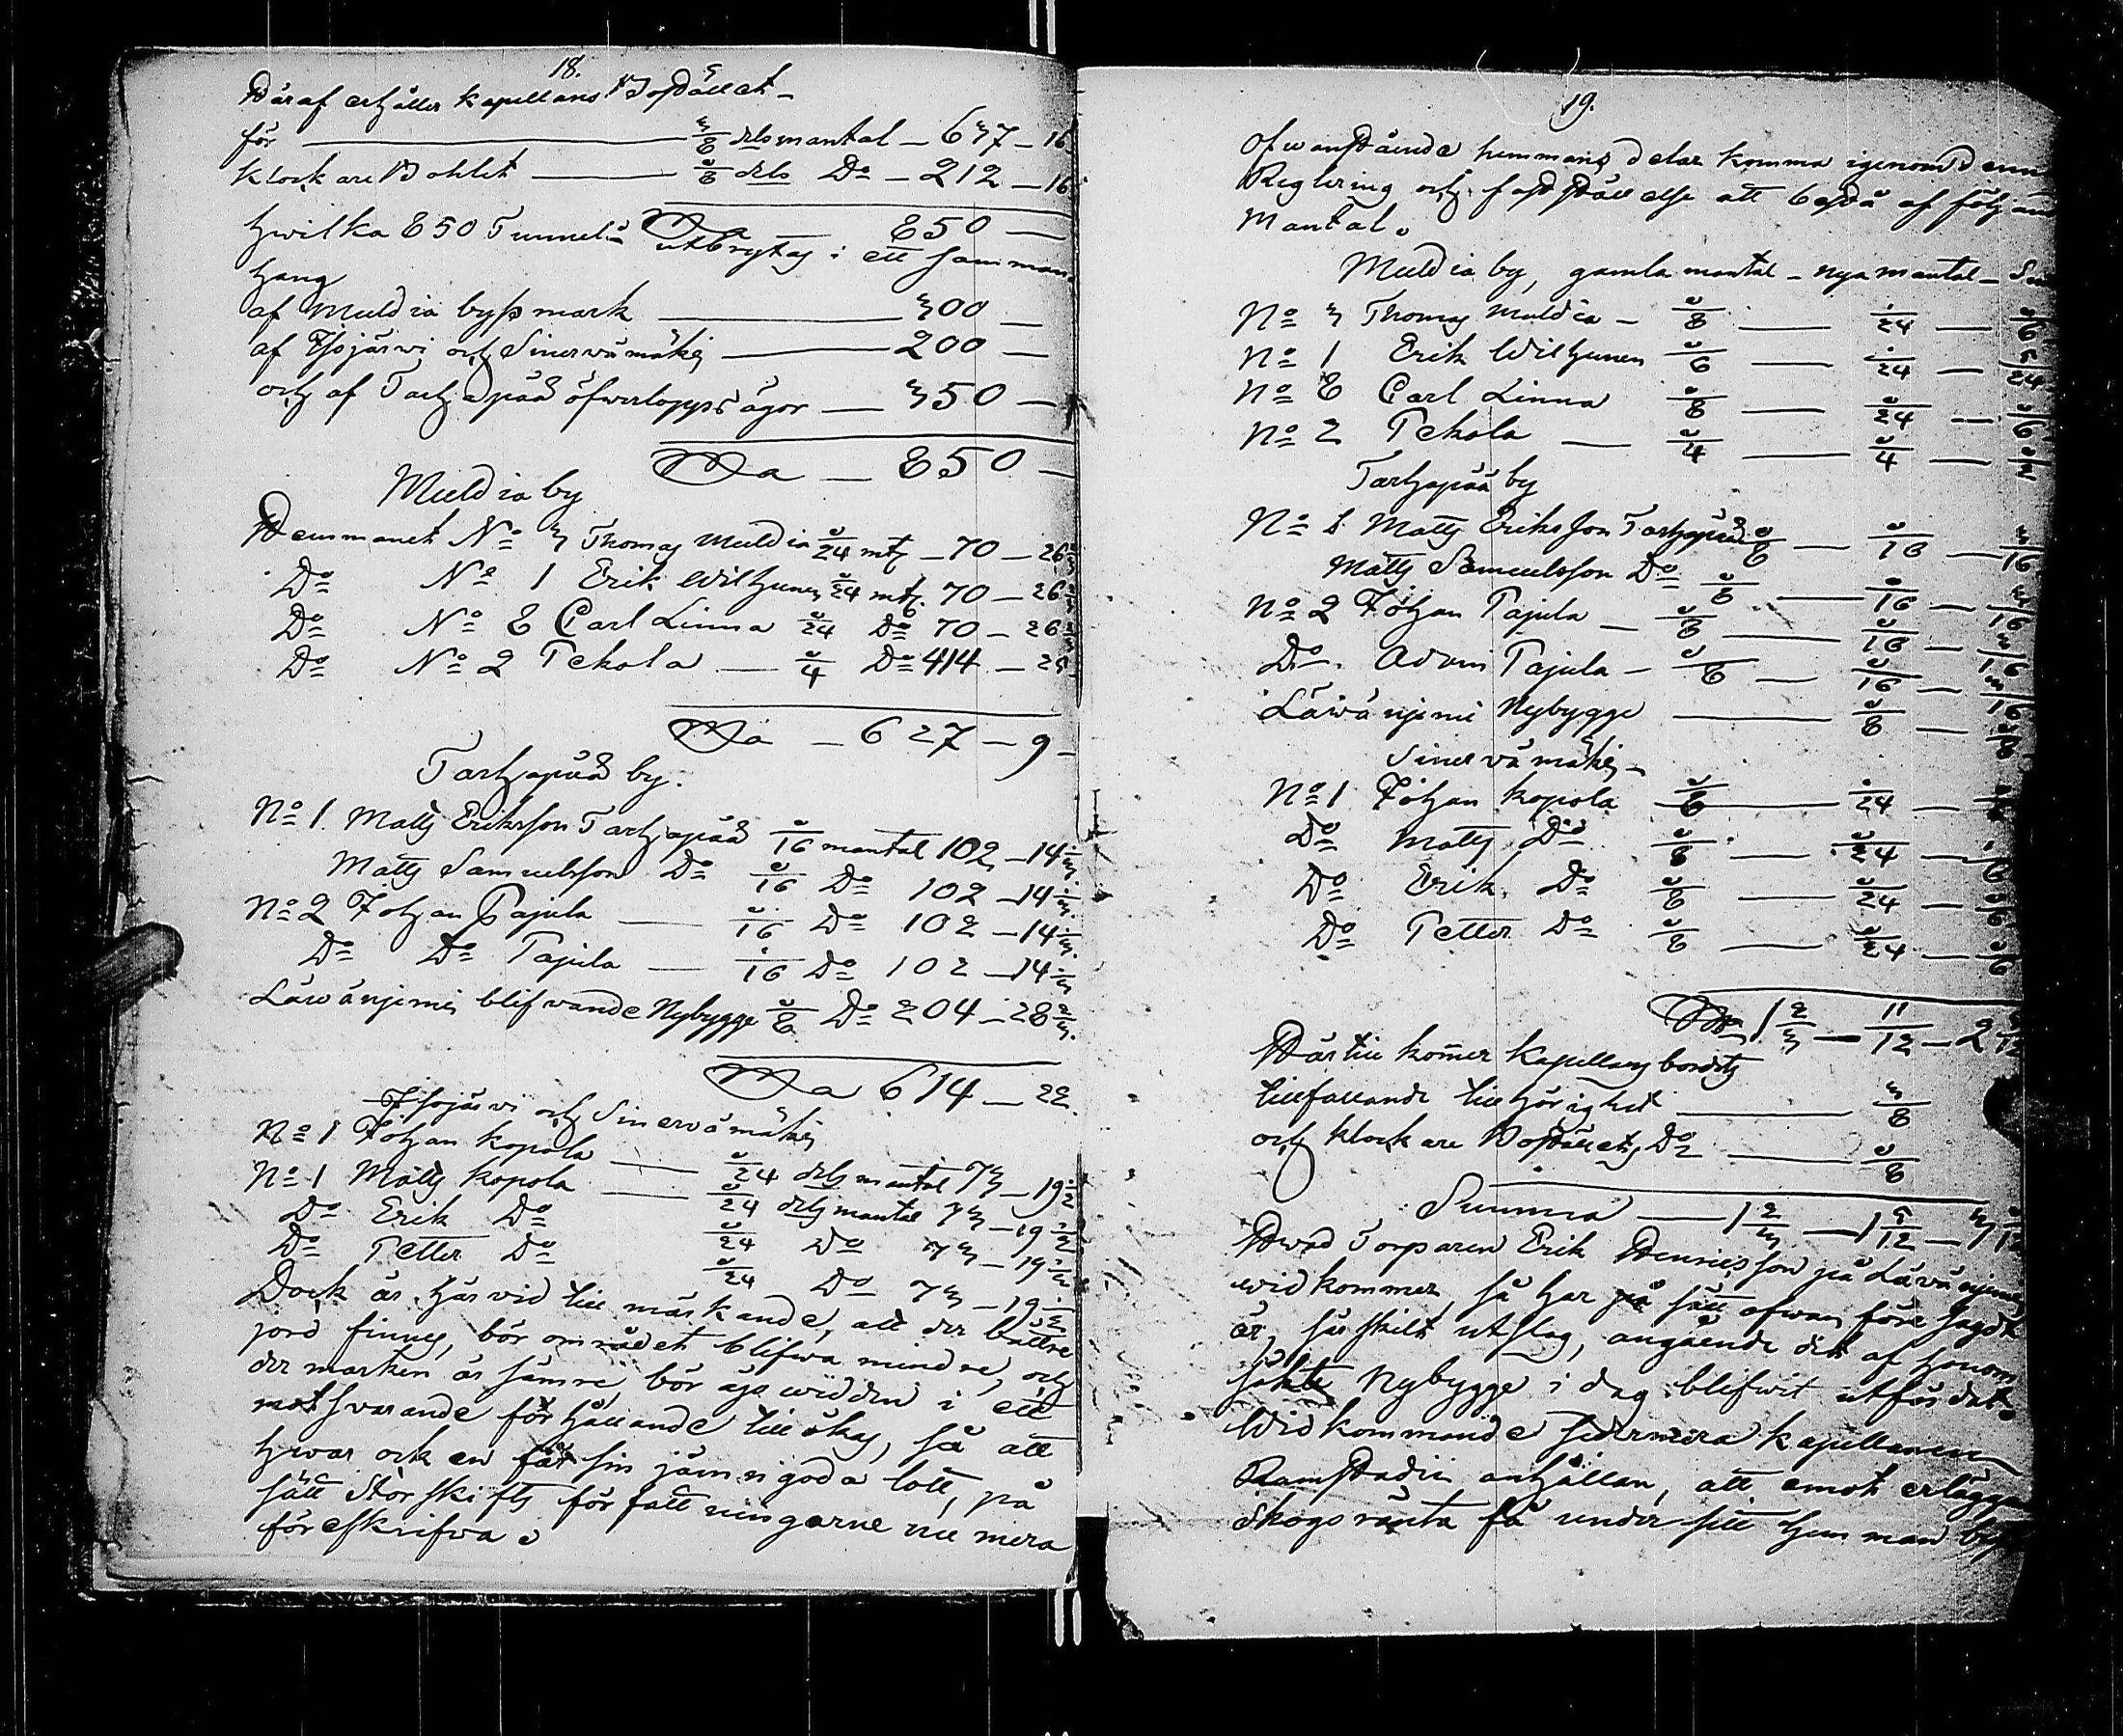 18.
Däraf erhåller kapellans Boställ et
för — 3/8 dels mantal — 637 — 16
Klockare Bohlet — 1/8 dels Do — 212 — 16
Sa 850 —
hwilka 850 Tunnel:d utbrytas i ett samman
hang
af Muldia byss mark — 300 —
af Isojärvi och Sinervämäki — 200 —
och af Tarhapää öfwerlopps ägor — 350 —
Sa — 850 —
Muldia by
Hemmanet No 3 Thomas Muldia 1/24 mtl — 70 — 26 2/3
Do No 1 Erik Wilhunen 1/24 mtl. 70 — 26 2/3
Do No 8 Carl Linna 1/24 Do 70 — 26 2/3
Do No 2 Pekola — 1/4 Do 414 — 25
Sa — 627 — 9 —
Tarhapää by.
No 1. Matts Eriksson Tarhapää 1/16 mantal 102 — 14 1/3
Matts Samuelsson Do 1/16 Do 102 — 14 1/3
No 2 Johan Pajula — 1/16 Do 102 — 14 1/3
Do Do Pajula — 1/16 Do 102 — 14 1/3
Läwäniemi blifvande Nybygge 1/8 Do 204 — 28 2/3
Sa 614 — 22
Isojärvi och Sinervämäki
No 1 Johan kopola — 1/24 dels mantal 73 — 19 1/2
No 1 Matts kopola — 1/24 dels mantal 73 — 19 1/2
Do Erik Do 1/24 Do 73 — 19 1/2
Do Petter Do 1/24 Do 73 — 19 1/2
Dock är härvid till märkande, att der bättre
jord finnes, bör området blifwa mindre, och
der marken är sämre, bör ägowidden i ett
motsvarande förhållande till ökas, så att
hwar ock en fåt sin jämngoda lott, på
sätt Storskifts författningarne nu mera
föreskrifwa.
19.
Ofwanstående hemmans delar komma igenom denn
Reglering och fastställelse att bestå af följand
Mantal.
Muldia by, gamla mantal — nya mantal —
No 3 Thomas Muldia — 1/8 — 1/24 — 1/6
No 1 Erik Wilhunen 1/6 — 1/24 — 5/24
No 8 Carl Linna 1/8 — 1/24 — 1/6
No 2 Pekola — 1/4 — 1/4 — 1/2
Tarhapää by
No 1. Matts Eriksson Tarhapää 1/8 — 1/16 — 3/16
Matts Samuelsson Do 1/8 — 1/16 — 3/16
No 2 Johan Pajula — 1/8 — 1/16 — 3/16
Do. Adam Pajula — 1/8 — 1/16 — 3/16
Läwäniemi Nybygge — 1/8 — 1/8
Sinervämäki —
No 1 Johan kopola 1/8 — 1/24 —
Do Matts Do 1/8 — 1/24 — 1/6
Do Erik Do 1/8 — 1/24 — 1/6
Do Petter Do 1/8 — 1/24 — 1/6
Sa 1 2/3 — 11/12 — 2
Härtill kommer Kapellans bords
tillfallande tillhörighet — 3/8
och klockare Boställets Do — 1/8
Summa — 1 2/3 — 1 5/12 — 3
Hwad Torparen Erik Henricsson på Läväniemi
widkommer, så har på sätt ofwanföre sagdt
är, särskilt utslag, angående det af honom
sökte Nybygge i dag blifwit utfärdat.
Widkommande sidermera kapellanen
Ramstadii anhållan, att emot erläggan
Skogsränta få under sitt hemman